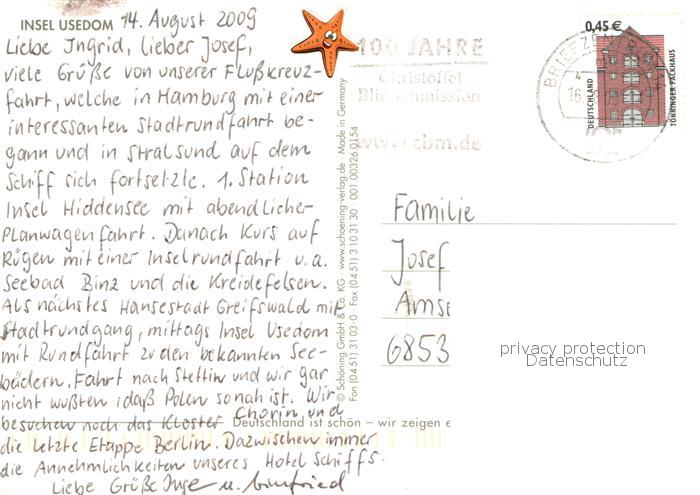 INSEL USEDOM 14. August 2009
Liebe Ingrid, lieber Josef,
viele Grüße von unserer Flußkreuz-
fahrt, welche in Hamburg mit einer
interessanten Stadtrundfahrt be-
gann und in Stralsund auf dem
Schiff sich fortsetzte. 1. Station
Insel Hiddensee mit abendlicher
Planwagenfahrt. Danach Kurs auf
Rügen mit einer Inselrundfahrt u.a.
Seebad Binz und die Kreidefelsen.
Als nächstes Hansestadt Greifswald mit
Stadtrundgang, mittags Insel Usedom
mit Rundfahrt zu den bekannten See-
bädern. Fahrt nach Stettin und wir gar
nicht wußten, daß Polen so nah ist. Wir
besuchen noch das Kloster Chorin, und
Deutschland ist schön – wir zeigen e
die letzte Etappe Berlin. Dazwischen immer
die Annehmlichkeiten unseres Hotelschiffs.
Liebe Grüße Inge u. Winfried
© Schöning GmbH & Co. KG · www.schoening-verlag.de · Made in Germany
Fon (0451) 31 03-0 · Fax (0451) 3 10 31 30 · 001 00326 0154
100 JAHRE
Christoffel
Blindenmission
www.cbm.de
BRIEFZEN
16.
0,45 €
DEUTSCHLAND
TÖNNINGER PACKHAUS
Familie
Josef
Amse
6853
privacy protection
Datenschutz